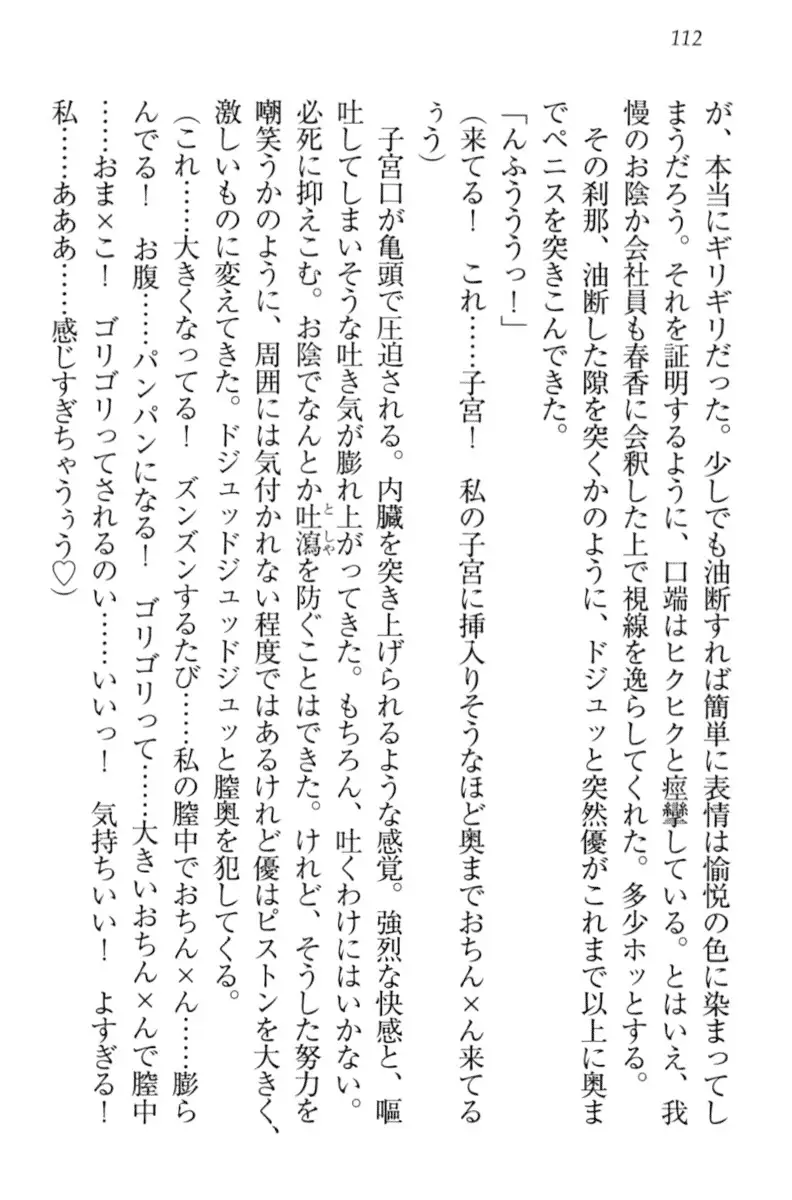 112
が、本当にギリギリだった。少しでも油断すれば簡単に表情は愉悦の色に染まってし
まうだろう。それを証明するように、口端はヒクヒクと痙攣している。とはいえ、我
慢のお陰か会社員も春香に会釈した上で視線を逸らしてくれた。多少ホッとする。
　その刹那、油断した隙を突くかのように、ドジュッと突然優がこれまで以上に奥ま
でペニスを突きこんできた。
「んふうううっ！」
（来てる！　これ……子宮！　私の子宮に挿入りそうなほど奥までおちん×ん来てる
ぅう）
　子宮口が亀頭で圧迫される。内臓を突き上げられるような感覚。強烈な快感と、嘔
吐してしまいそうな吐き気が膨れ上がってきた。もちろん、吐くわけにはいかない。
必死に抑えこむ。お陰でなんとか吐瀉としゃを防ぐことはできた。けれど、そうした努力を
嘲笑うかのように、周囲には気付かれない程度ではあるけれど優はピストンを大きく、
激しいものに変えてきた。ドジュッドジュッドジュッと膣奥を犯してくる。
（これ……大きくなってる！　ズンズンするたび……私の膣中でおちん×ん……膨ら
んでる！　お腹……パンパンになる！　ゴリゴリって……大きいおちん×んで膣中
……おま×こ！　ゴリゴリってされるのい……いいっ！　気持ちいい！　よすぎる！
私……あああ……感じすぎちゃうぅう♡）